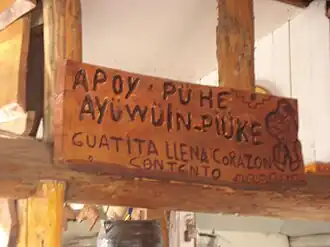 APOY PÜHE
AYÜWÜIN PIÜKE
GUATITA LLENA CORAZON
CONTENTO